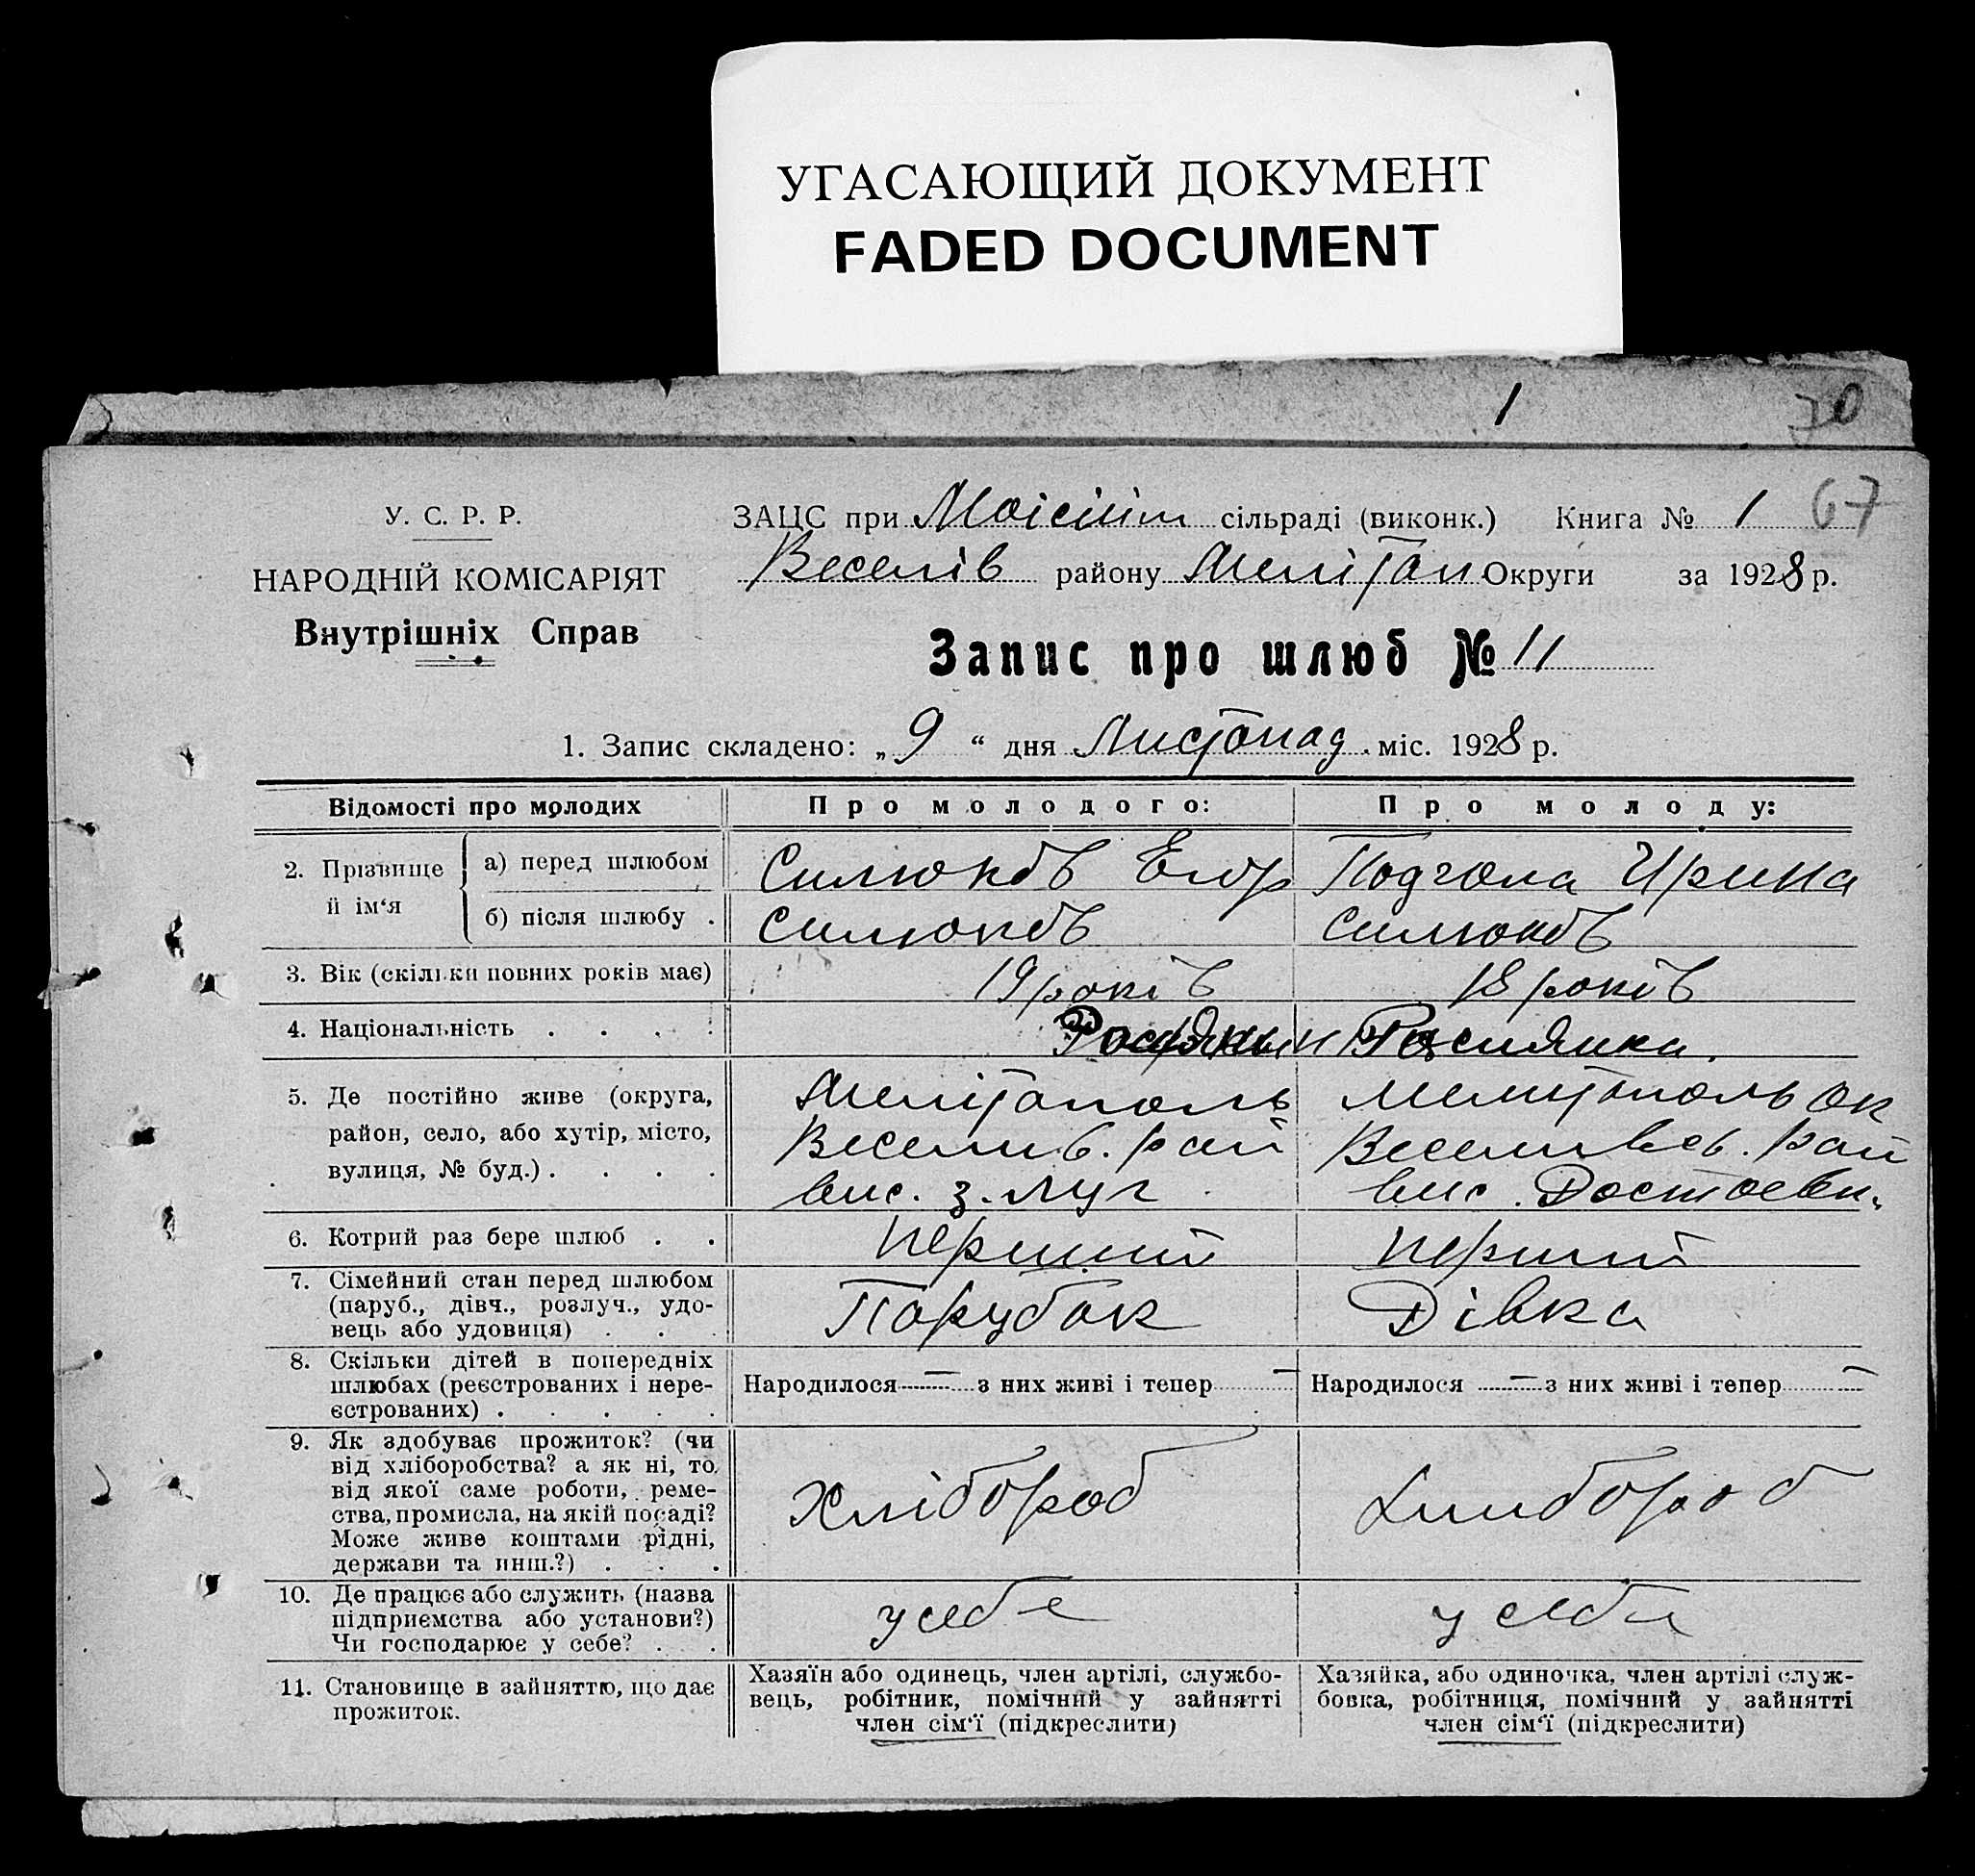 УГАСАЮЩИЙ ДОКУМЕНТ
FADED DOCUMENT
1 70
У. С. Р. Р.
НАРОДНІЙ КОМІСАРІЯТ
Внутрішніх Справ
ЗАЦС при сільраді (виконк.) Книга № 1 67
Веселів району Мелітоп Округи за 1928 р.
Запис про шлюб № 11
1. Запис складено: „ 9 “ дня Листопад міс. 1928 р.
Відомості про молодих
Про молодого:
Про молоду:
2. Прізвище й ім‘я
а) перед шлюбом
Силюков Егор
Подгола Ирина
б) після шлюбу .
Силюков
Силюков
3. Вік (скільки повних років має)
19 років
18 років
4. Національність . . . .
Росиянка.
5. Де постійно живе (округа,
район, село, або хутір, місто,
вулиця, № буд.) . . . .
Мелітополь
Веселив. рай
вис. з. Луг
Мелитополь ок
Веселивсь. рай
вис.
6. Котрий раз бере шлюб . .
перший
перший
7. Сімейний стан перед шлюбом
(паруб., дівч., розлуч., удо-
вець або удовиця) . . .
Парубок
Дівка
8. Скільки дітей в попередніх
шлюбах (реєстрованих і нере-
єстрованих) . . . . .
Народилося — з них живі і тепер —
Народилося — з них живі і тепер —
9. Як здобуває прожиток? (чи
від хліборобства? а як ні, то
від якої саме роботи, реме-
ства, промисла, на якій посаді?
Може живе коштами рідні,
держави та инш.?) . . .
Хлібороб
Хлибороб
10. Де працює або служить (назва
підприємства або установи?)
Чи господарює у себе? . .
у себе
у себе
11. Становище в зайняттю, що дає
прожиток.
Хазяїн або одинець, член артілі, службо-
вець, робітник, помічний у зайнятті
член сім‘ї (підкреслити)
Хазяйка, або одиночка, член артілі служ-
бовка, робітниця, помічний у зайнятті
член сім‘ї (підкреслити)